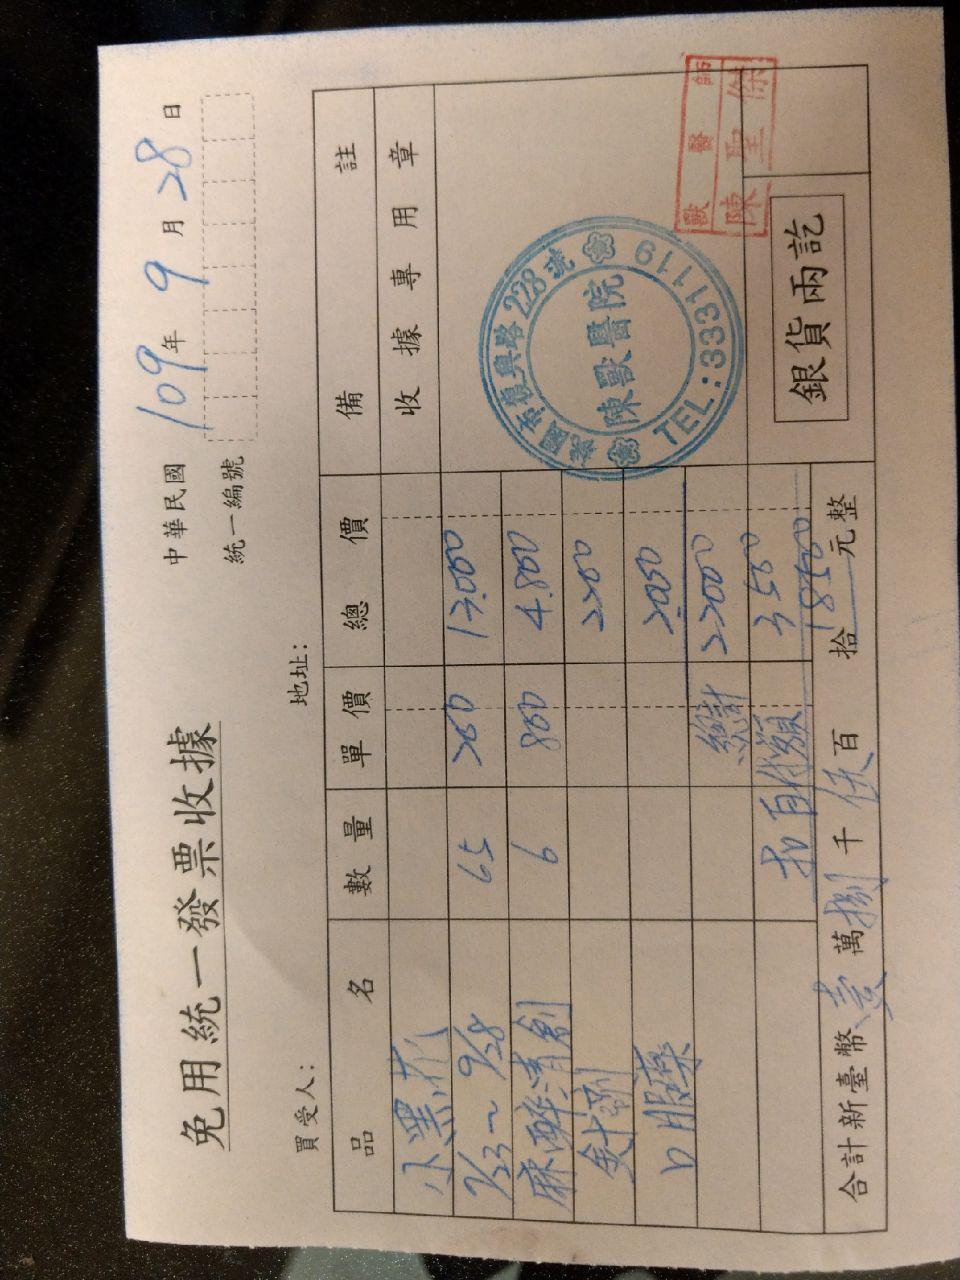 免用統一發票收據
中華民國 109 年 9 月 28 日
統一編號
買受人：
地址：
品名 數量 單價 總價 備註
小黑
7/23~9/28 65 200 13.000
麻醉清創 6 800 4.800
針劑 2200
口服藥 2.000
總計 22000
3500
扣自付額 18500
合計新臺幣 壹 萬 捌 千 伍 百 拾 元整
收據專用章
桃園市復興路228號
陳獸醫院
TEL:3331119
獸醫師
陳聖傑
銀貨兩訖